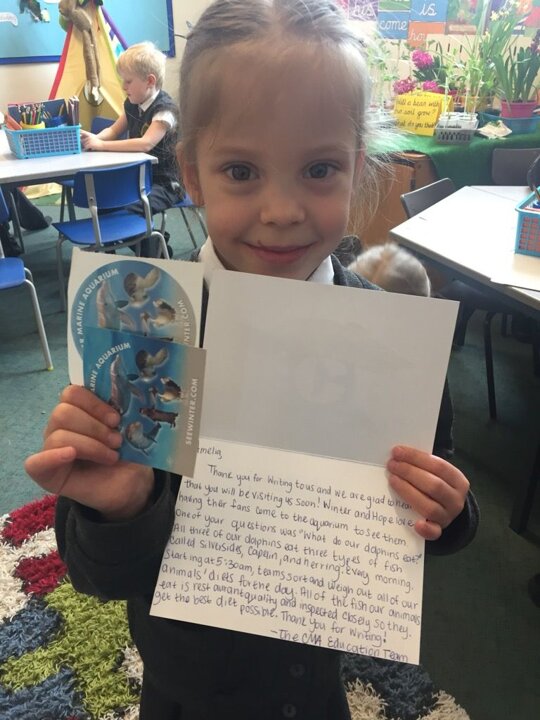 is
come
MARINE AQUARIUM
WINTER.COM
MARINE AQUARIUM
SEEWINTER.COM
melia,
Thank you for Writing to us and we are glad to hear
that you will be visiting us soon! Winter and Hope love
having their fans come to the aquarium to see them.
One of your questions was "What do our dolphins eat?"
All three of our dolphins eat three types of fish
called Silversides, Capelin, and herring. Every morning,
starting at 5:30am, teams sort and weigh out all of our
animals' diets for the day. All of the fish our animals
eat is restaurant quality and inspected closely so they
get the best diet possible. Thank you for Writing!
-The CMA Education Team